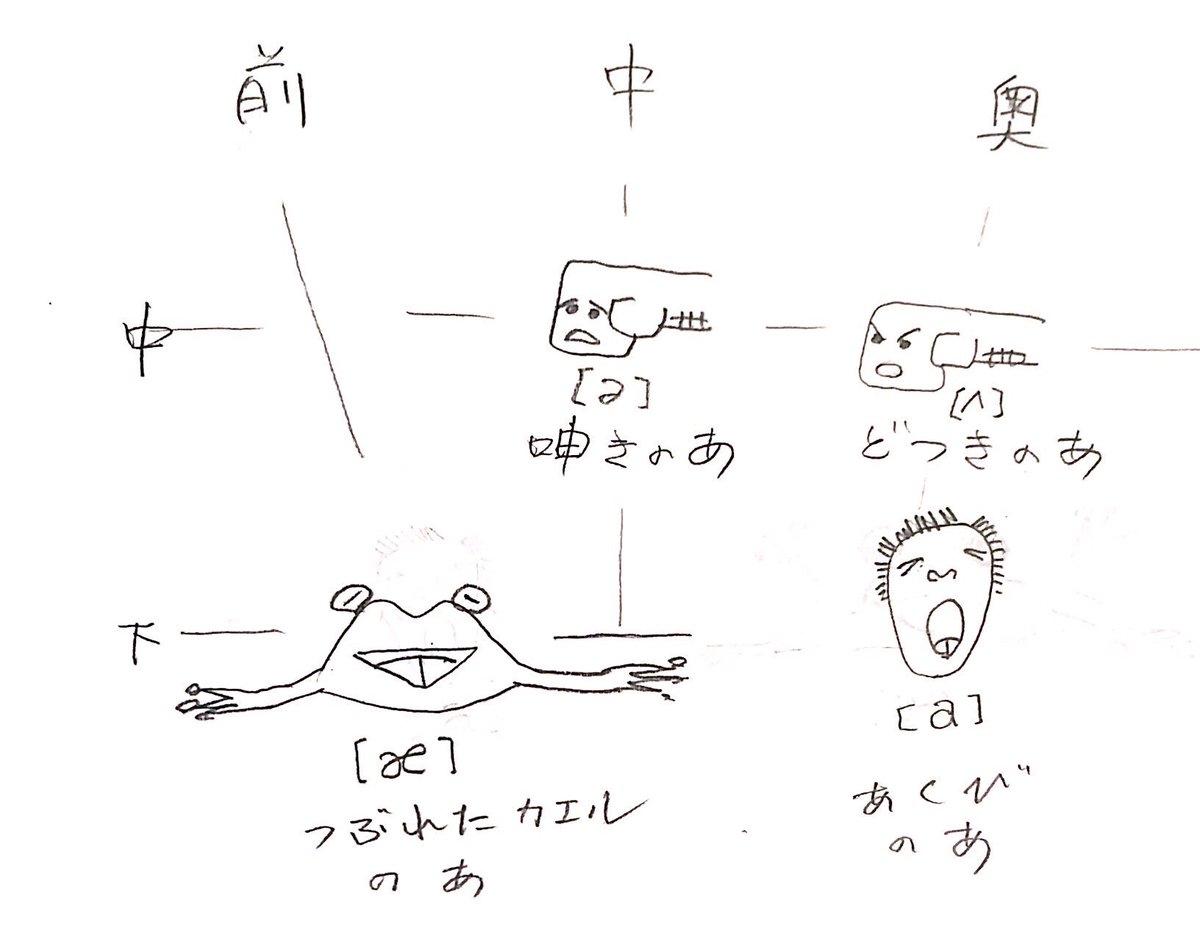 前 中 奥
中
[ə]
呻きのあ
[ʌ]
どつきのあ
下
[æ]
つぶれたカエル
のあ
[a]
あくび
のあ